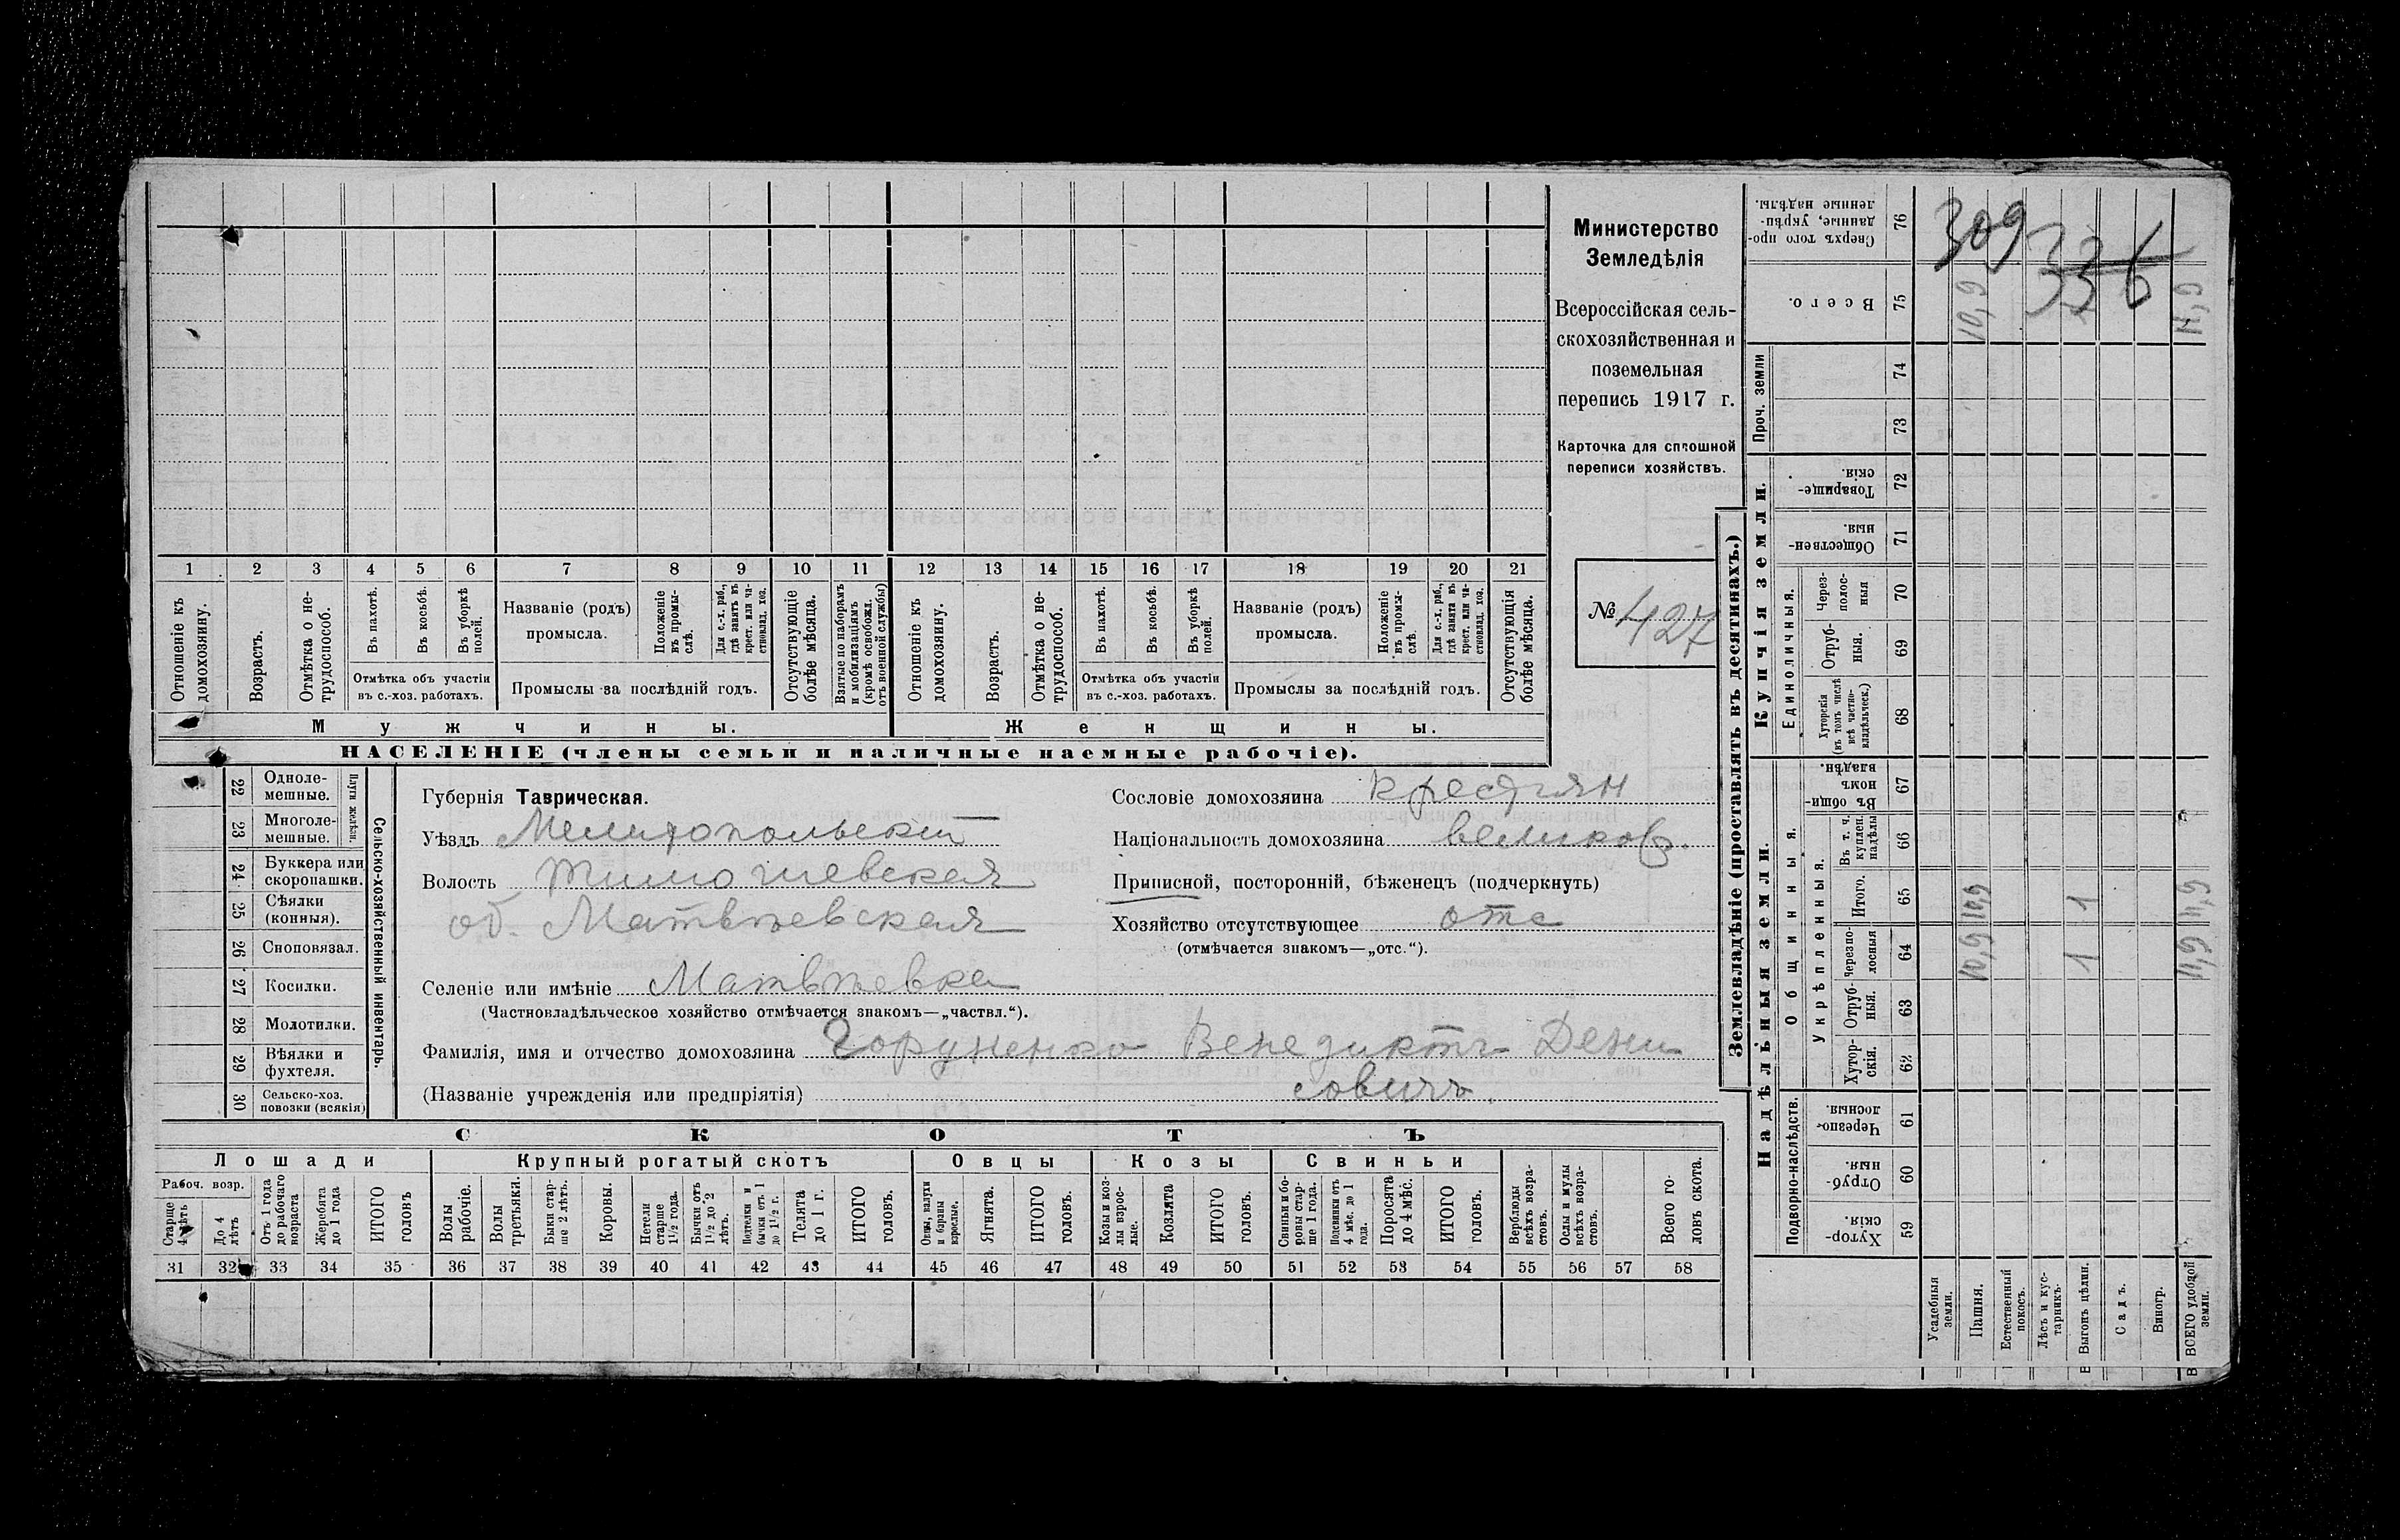 Министерство
Земледѣлія
Всероссійская сель-
скохозяйственная и
поземельная
перепись 1917 г.
Карточка для сплошной
переписи хозяйствъ.
№ 427
309
336
1 2 3 4 5 6 7 8 9 10 11 12 13 14 15 16 17 18 19 20 21
Отношеніе къ домохозяину.
Возрастъ.
Отмѣтка о не-трудоспособ.
Въ пахотѣ.
Въ косьбѣ.
Въ уборкѣ полей.
Отмѣтка объ участіи
въ с.-хоз. работахъ.
Названіе (родъ)
промысла.
Положеніе въ промы-слѣ.
Для с.-х. раб., гдѣ занятъ въ крест. или ча-стновлад. хоз.
Промыслы за послѣдній годъ.
Отсутствующіе болѣе мѣсяца.
Взятые по наборамъ и мобилизаціямъ (кромѣ освобожд. отъ военной службы)
Отношеніе къ домохозяину.
Возрастъ.
Отмѣтка о не-трудоспособ.
Въ пахотѣ.
Въ косьбѣ.
Въ уборкѣ полей.
Отмѣтка объ участіи
въ с.-хоз. работахъ.
Названіе (родъ)
промысла.
Положеніе въ промы-слѣ.
Для с.-х. раб., гдѣ занята въ крест. или ча-стновлад. хоз.
Промыслы за послѣдній годъ.
Отсутствующія болѣе мѣсяца.
Мужчины. Женщины.
НАСЕЛЕНІЕ (члены семьи и наличные наемные рабочіе).
22 Одноле-мешные.
23 Многоле-мешные.
Плуги желѣзн.
24 Буккера или скоропашки.
25 Сѣялки (конныя).
26 Сноповязал.
27 Косилки.
28 Молотилки.
29 Вѣялки и фухтеля.
30 Сельско-хоз. повозки (всякія)
Сельско-хозяйственный инвентарь.
Губернія Таврическая.
Сословіе домохозяина крестьян
Уѣздъ Мелитопольскій
Національность домохозяина великор.
Волость Тимошевская
Приписной, посторонній, бѣженецъ (подчеркнуть)
об. Матвѣевская
Хозяйство отсутствующее отс
(отмѣчается знакомъ—„отс.“).
Селеніе или имѣніе Матвѣевка
(Частновладѣльческое хозяйство отмѣчается знакомъ—„частвл.“).
Фамилія, имя и отчество домохозяина Горуненко Венедиктъ Дени
(Названіе учрежденія или предпріятія) совичъ.
СКОТЪ
Лошади Крупный рогатый скотъ Овцы Козы Свиньи
Рабоч. возр.
Старше 4 лѣтъ
До 4 лѣтъ
Отъ 1 года до рабочаго возраста
Жеребята до 1 года
ИТОГО головъ
Волы рабочіе.
Волы третьяки.
Быки стар-ше 2 лѣтъ.
Коровы.
Нетели старше 1½ года.
Бычки отъ 1½ до 2 лѣтъ.
Подтелки и бычки отъ 1 до 1½ г.
Телята до 1 г.
ИТОГО головъ.
Овцы, валухи и бараны взрослые.
Ягнята.
ИТОГО головъ.
Козы и коз-лы взрос-лые.
Козлята
ИТОГО головъ.
Свиньи и бо-ровы стар-ше 1 года.
Подсвинки отъ 4 мѣс. до 1 года.
Поросята до 4 мѣс.
ИТОГО головъ.
Верблюды всѣхъ возра-стовъ.
Ослы и мулы всѣхъ возра-стовъ.
Всего го-ловъ скота.
31 32 33 34 35 36 37 38 39 40 41 42 43 44 45 46 47 48 49 50 51 52 53 54 55 56 57 58
Землевладѣніе (проставлять въ десятинахъ.)
Сверхъ того про-данные, укрѣп-ленные надѣлы. 76
Всего. 75 10,9 11,9
Проч. земли
74
73
Купчія земли.
Товарище-скія. 72
Обществен-ныя. 71
Единоличныя.
Через-полос-ныя 70
Отруб-ныя. 69
Хуторскія (въ томъ числѣ всѣ частно-владѣльческ.) 68
Надѣльныя земли.
Общинныя.
Въ общи-номъ владѣн. 67
Укрѣпленныя.
Въ т. ч. куплен. надѣлы 66
Итого. 65 10,9 1 11,9
Черезпо-лосныя 64 10,9 1 11,9
Отруб-ныя. 63
Хутор-скія. 62
Подворно-наслѣдств.
Черезпо-лосныя. 61
Отруб-ныя. 60
Хутор-скія. 59
Усадебныя земли.
Пашня.
Естественный покосъ.
Лѣсъ и кус-тарникъ.
Выгонъ цѣлин.
Садъ.
Виногр.
ВСЕГО удобной земли.